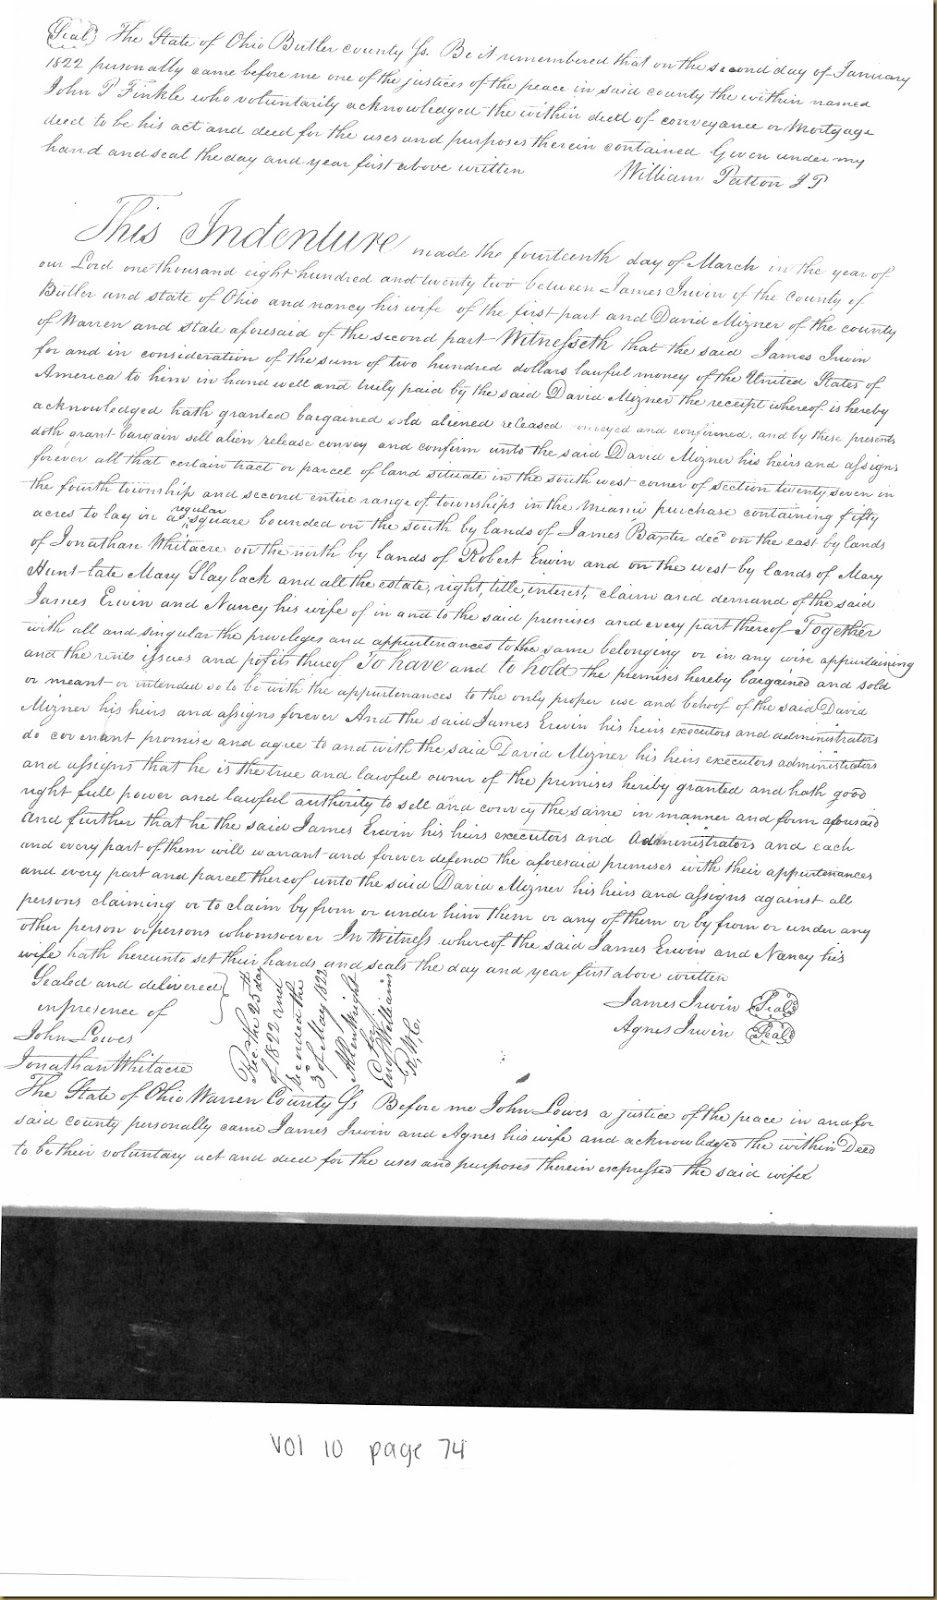 (Seal) The State of Ohio Butler county Ss. Be it remembered that on the second day of January
1822 personally came before me one of the justices of the peace in said county the within named
John P Finkle who voluntarily acknowledged the within deed of conveyance or Mortgage
deed to be his act and deed for the uses and purposes therein contained Given under my
hand and seal the day and year first above written William Patton J P
This Indenture made the fourteenth day of March in the year of
our Lord one thousand eight hundred and twenty two between James Irwin of the county of
Butler and state of Ohio and nancy his wife of the first part and David Mizner of the county
of Warren and state aforesaid of the second part Witnesseth that the said James Irwin
for and in consideration of the sum of two hundred dollars lawful money of the United States of
America to him in hand well and truly paid by the said David Mizner the receipt whereof is hereby
acknowledged hath granted bargained sold aliened released conveyed and confirmed and by these presents
doth grant bargain sell alien release convey and confirm unto the said David Mizner his heirs and assigns
forever all that certain tract or parcel of land situate in the south west corner of section twenty seven in
the fourth township and second entire range of townships in the Miami purchase containing fifty
acres to lay in a regular square bounded on the south by lands of James Baxter decd on the east by lands
of Jonathan Whitacre on the north by lands of Robert Erwin and on the west by lands of Mary
Hunt late Mary Slayback and all the estate, right, title, interest, claim and demand of the said
James Erwin and Nancy his wife of in and to the said premises and every part thereof Together
with all and singular the privileges and appurtenances to the same belonging or in any wise appurtaining
and the rents issues and pofits thereof To have and to hold the premises hereby bargained and sold
or meant or intended so to be with the appurtenances to the only proper use and behoof of the said David
Mizner his heirs and assigns forever And the said James Erwin his heirs executors and administrators
do covenant promise and agree to and with the said David Mizner his heirs executors administrators
and assigns that he is the true and lawful owner of the premises hereby granted and hath good
right full power and lawful authority to sell and convey the same in manner and form aforesaid
And further that he the said James Erwin his heirs executors and Administrators and each
and every part of them will warrant and forever defend the aforesaid premises with their appurtenances
and every part and parcel thereof unto the said David Mizner his heirs and assigns against all
persons claiming or to claim by from or under him them or any of them or by from or under any
other person or persons whomsoever In Witness whereof the said James Erwin and Nancy his
wife hath hereunto set their hands and seals the day and year first above written
Sealed and delivered
in presence of
John Lowes
Jonathan Whitacre
Rec. the 25th day
of 1822 and
recorded the
3 of May 1822
Allen Wright
Enos Williams
R, W, C.
James Irwin (Seal)
Agnes Irwin (Seal)
The State of Ohio Warren County Ss Before me John Lowes a justice of the peace in and for
said county personally came James Irwin and Agnes his wife and acknowledged the within Deed
to be their voluntary act and deed for the uses and purposes therein expressed the said wife
Vol 10 page 74